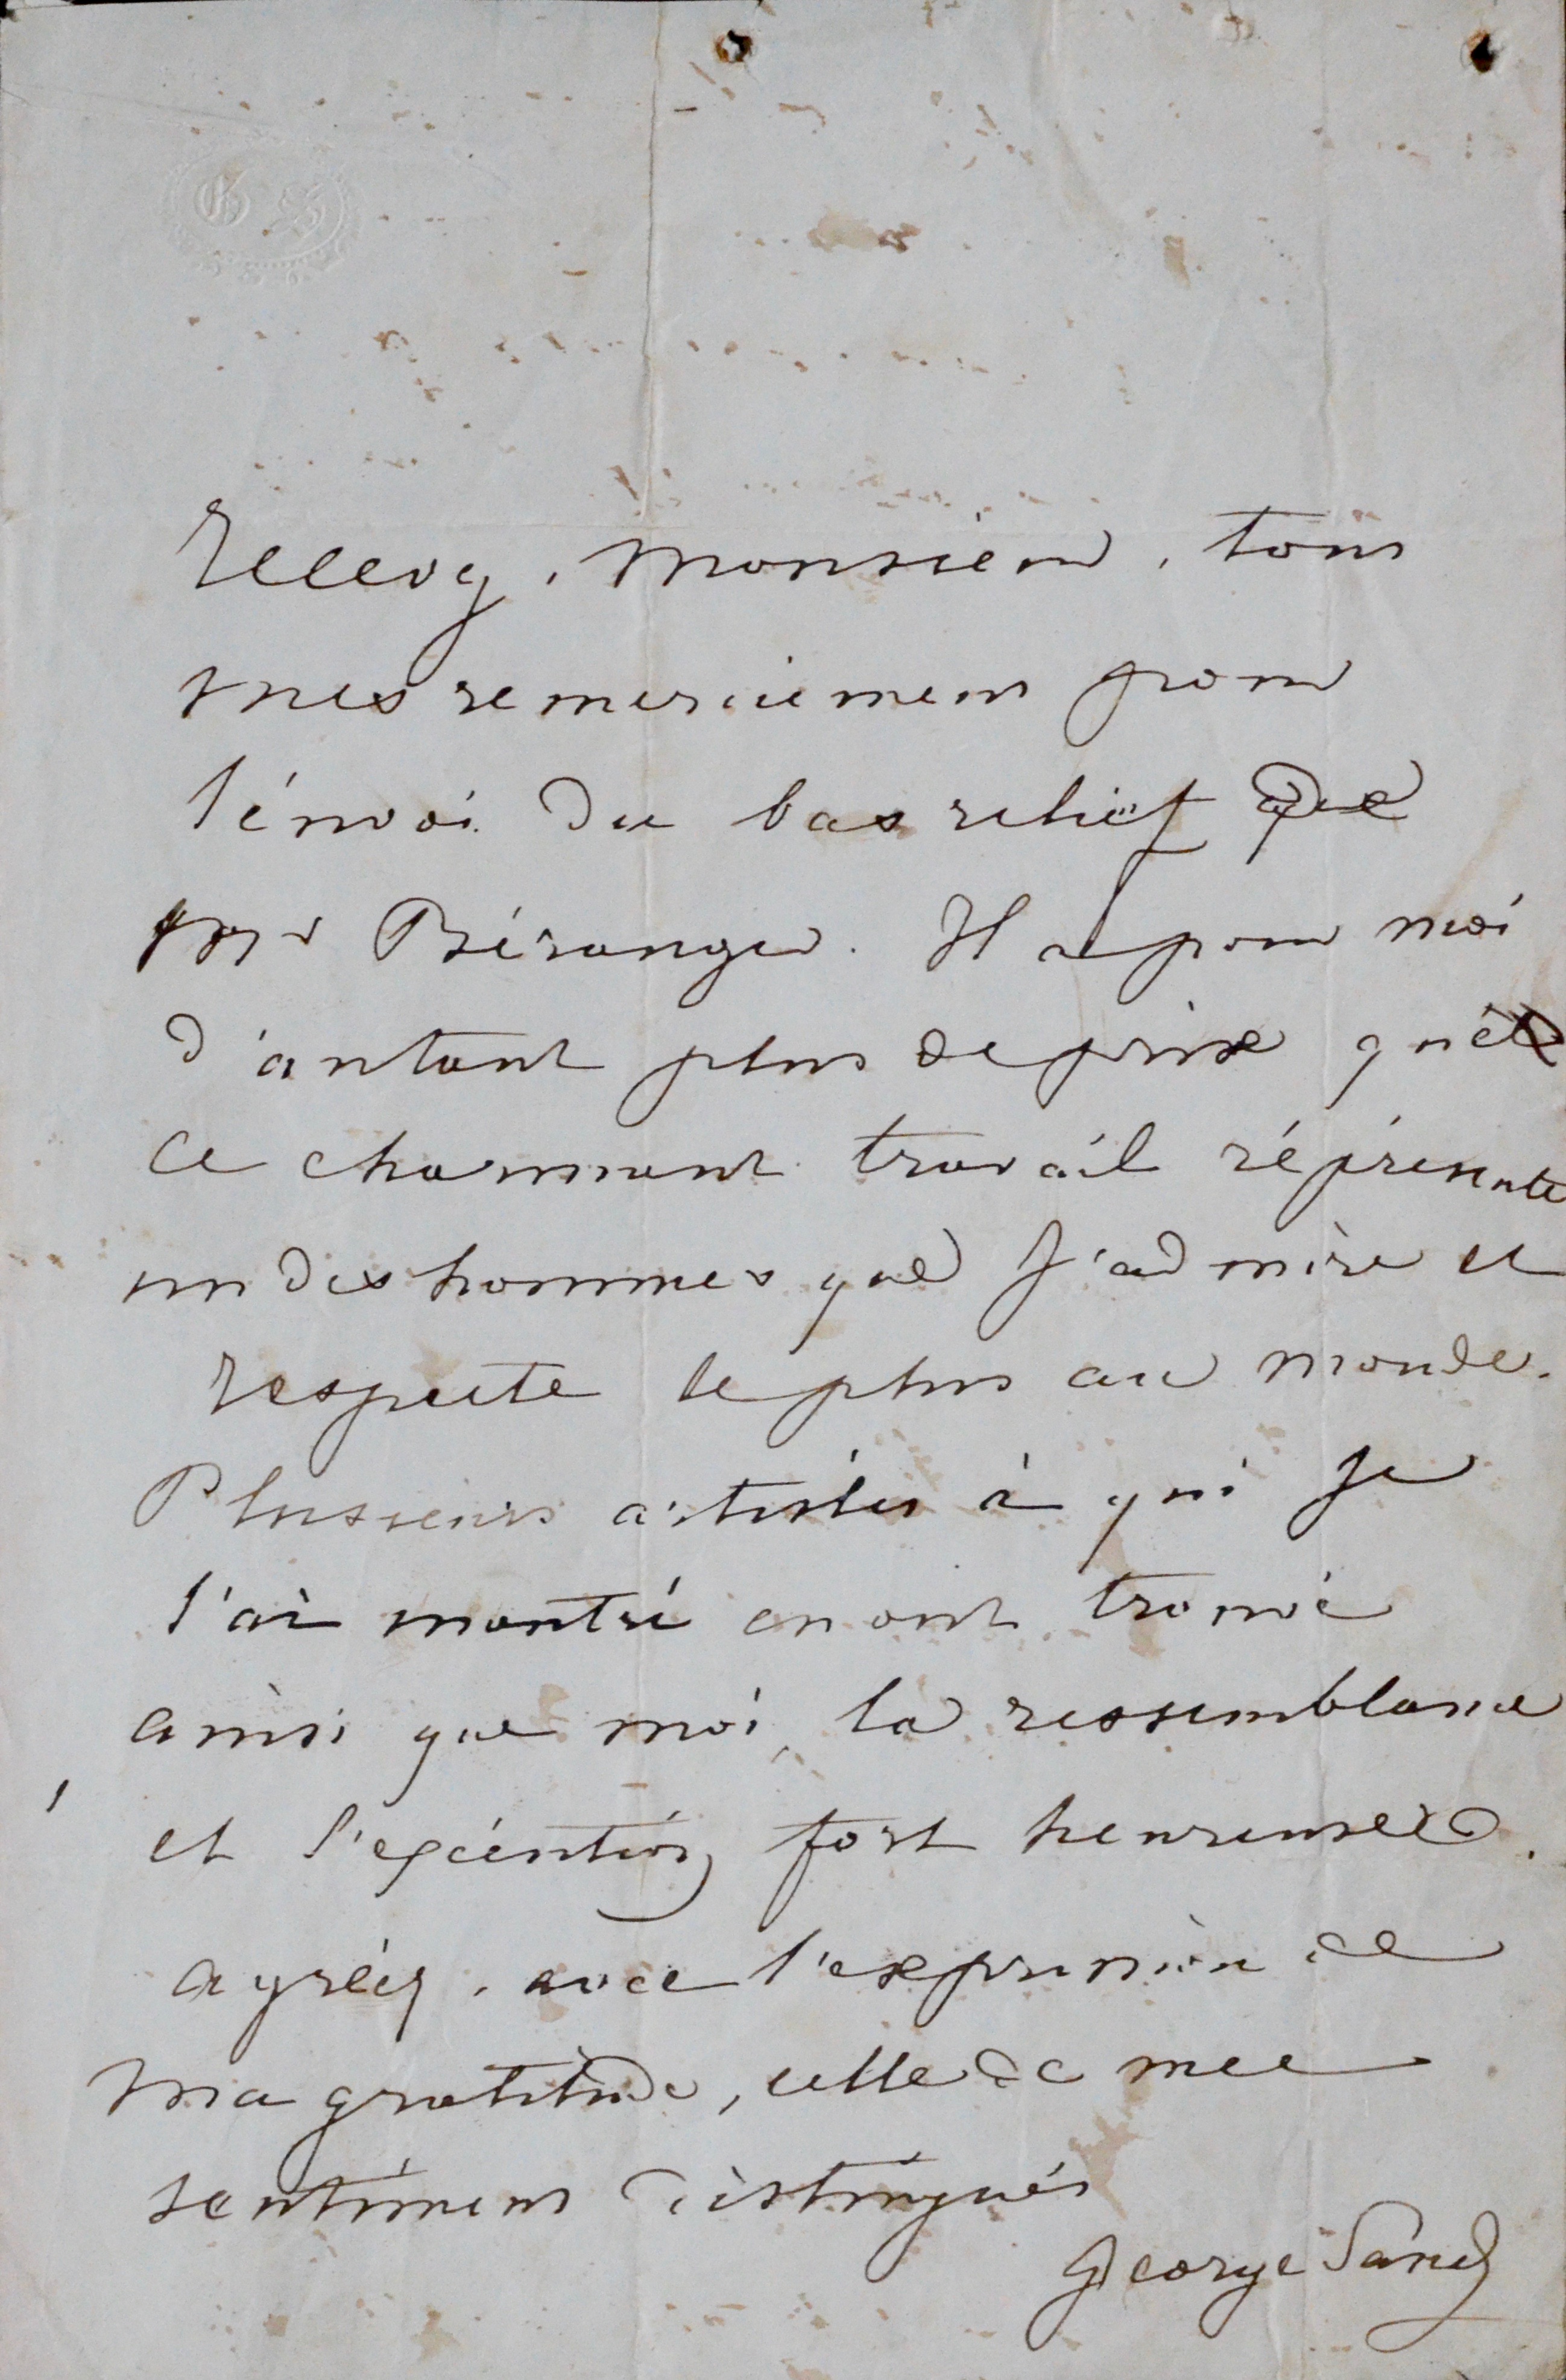 G S
Recevez, Monsieur, tous
mes remerciemens pour
l'envoi du bas relief de
Mr Béranger. Il a pour moi
d'autant plus de prix que
ce charmant travail réprésente
un des hommes que j'admire et
respecte le plus au monde.
Plusieurs artistes à qui je
l'ai montré en ont trouvé
ainsi que moi, la ressemblance
et l'exécution fort heureuses.
agréez, avec l'expression de
ma gratitude, celle de mes
sentimens distingués
George Sand